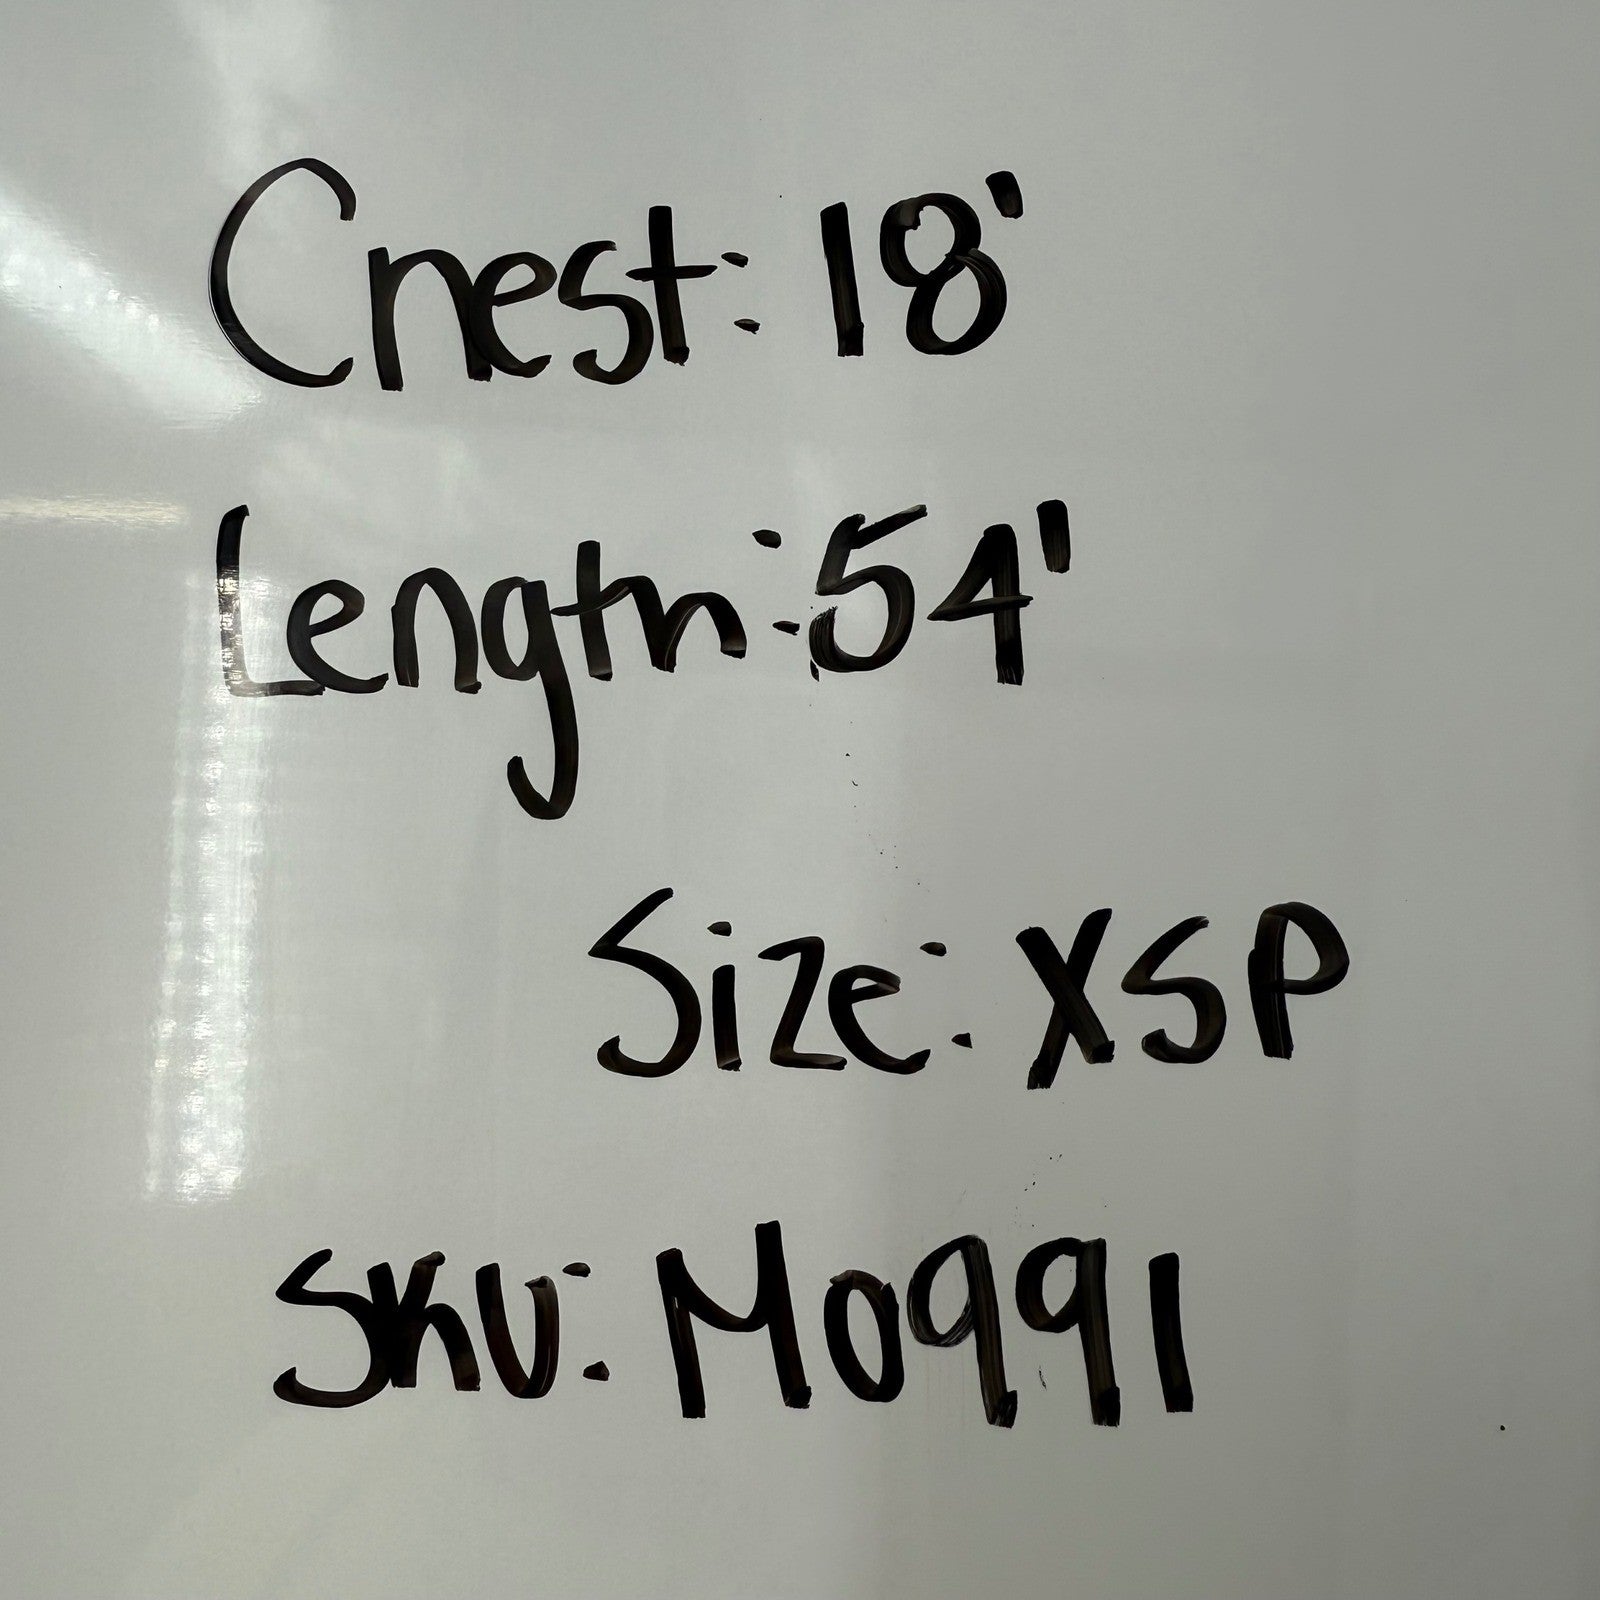 Chest: 18'
Length: 54'
Size: XSP
SKU: M0991